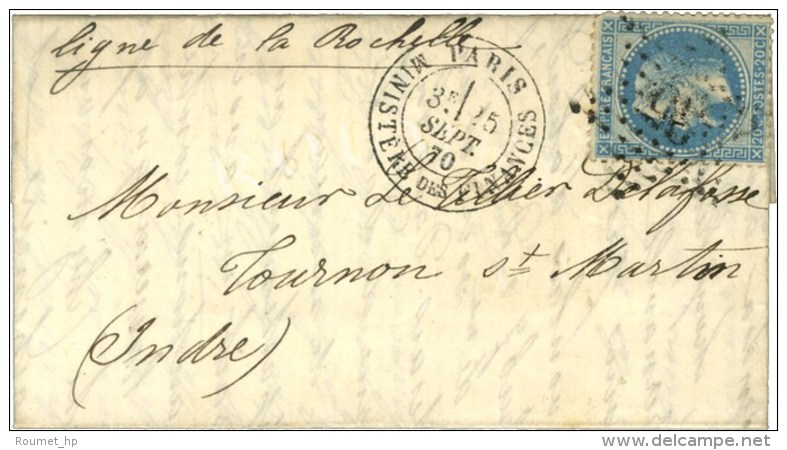 ligne de la Rochelle
PARIS
3E 25
SEPT.
70
MINISTÈRE DES FINANCES
EMPIRE FRANÇAIS
20 C. POSTES 20 C.
Monsieur Le Tellier Delafosse
Tournon st Martin
(Indre)
Roumet_hp
www.delcampe.net